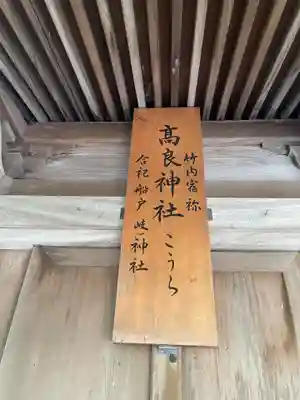 竹内宿祢
高良神社 こうら
合祀 船戸 岐神社